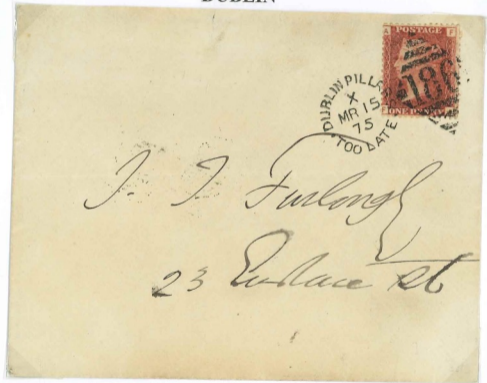 DUBLIN
A POSTAGE F
186
ONE
DUBLIN PILLAR
X
MR 15
75
TOO LATE
J. J. Furlongh
23 Eustace St